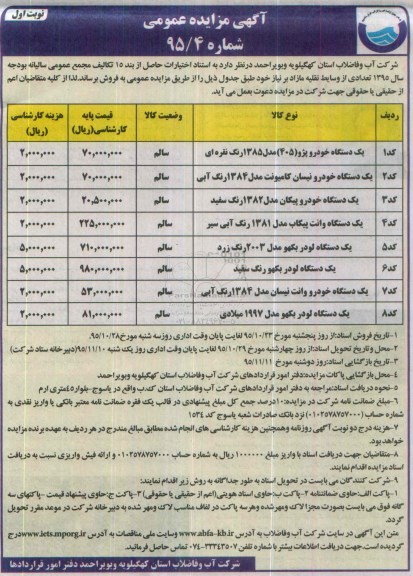 نوبت اول
آگهی مزایده عمومی
شماره ۹۵/۴
شرکت آب وفاضلاب استان کهگیلویه وبویراحمد درنظر دارد به استناد اختیارات حاصل از بند ۱۵ تکالیف مجمع عمومی سالیانه بودجه
سال ۱۳۹۵ تعدادی از وسایط نقلیه مازاد بر نیاز خود طبق جدول ذیل را از طریق مزایده عمومی به فروش برساند.لذا از کلیه متقاضیان اعم
از حقیقی یا حقوقی جهت شرکت در مزایده دعوت بعمل می آید.
ردیف نوع کالا وضعیت کالا قیمت پایه کارشناسی(ریال) هزینه کارشناسی (ریال)
کد۱ یک دستگاه خودرو پژو(۴۰۵)مدل۱۳۸۵رنگ نقره ای سالم ۷۰,۰۰۰,۰۰۰ ۲,۰۰۰,۰۰۰
کد۲ یک دستگاه خودرو نیسان کامیونت مدل۱۳۸۴رنگ آبی سالم ۷۰,۰۰۰,۰۰۰ ۲,۰۰۰,۰۰۰
کد۳ یک دستگاه خودرو پیکان مدل۱۳۸۲رنگ سفید سالم ۲۰,۵۰۰,۰۰۰ ۲,۰۰۰,۰۰۰
کد۴ یک دستگاه وانت پیکاب مدل ۱۳۸۱ رنگ آبی سیر سالم ۲۲۵,۰۰۰,۰۰۰ ۲,۰۰۰,۰۰۰
کد۵ یک دستگاه لودر بکهو مدل۲۰۰۳رنگ زرد سالم ۷۱۰,۰۰۰,۰۰۰ ۵,۰۰۰,۰۰۰
کد۶ یک دستگاه لودر بکهو رنگ سفید سالم ۹۸۰,۰۰۰,۰۰۰ ۵,۰۰۰,۰۰۰
کد۷ یک دستگاه خودرو وانت نیسان مدل۱۳۸۴رنگ آبی سالم ۵۳,۰۰۰,۰۰۰ ۲,۰۰۰,۰۰۰
کد۸ یک دستگاه لودر بکهو مدل ۱۹۹۷ میلادی سالم ۸۱,۰۰۰,۰۰۰ ۲,۰۰۰,۰۰۰
۱-تاریخ فروش اسناد:از روز پنجشنبه مورخ ۹۵/۱۰/۲۳ لغایت پایان وقت اداری روزسه شنبه مورخ۹۵/۱۰/۲۸
۲-محل وتاریخ تحویل اسناد:از روز چهارشنبه مورخ ۹۵/۱۰/۲۹ لغایت پایان وقت اداری روز یک شنبه ۹۵/۱۱/۱۰(دبیرخانه ستاد شرکت)
۳-تاریخ بازگشایی اسناد:روز دوشنبه مورخ ۹۵/۱۱/۱۱
۴-محل بازگشایی پاکات مزایده:دفتر امور قراردادهای شرکت آب وفاضلاب استان کهگیلویه وبویراحمد
۵-نحوه دریافت اسناد:مراجعه به دفتر امور قراردادهای شرکت آب وفاضلاب استان کدب واقع در یاسوج-بلوار۴۵متری ارم
۶-مبلغ ضمانت نامه شرکت در مزایده:۱۰درصد جمع کل مبلغ پیشنهادی در قالب یک فقره ضمانت نامه معتبر بانکی یا واریز نقدی به
شماره حساب (۰۱۰۲۵۷۸۷۵۷۰۰۰) نزد بانک صادرات شعبه یاسوج کد ۱۵۳۴
۷-هزینه درج دو نوبت آگهی روزنامه وهمچنین هزینه کارشناسی های انجام شده مطابق مبالغ مندرج در هر ردیف به عهده برنده مزایده
خواهد بود.
۸-متقاضیان جهت دریافت اسناد با واریز مبلغ ۱۰۰۰۰۰۰ ریال به شماره حساب ۰۱۰۲۵۷۸۷۵۷۰۰۰ و ارائه فیش واریزی نسبت به دریافت
اسناد مزایده اقدام نمایند.
۹-شرکت کنندگان می بایست در تحویل اسناد به طور جداگانه به روش زیر اقدام نمایند:
۱-پاکت الف:حاوی ضمانتنامه ۲-پاکت ب:حاوی اسناد هویتی(اعم از حقیقی یا حقوقی) ۳-پاکت ج:حاوی پیشنهاد قیمت -پاکتهای سه
گانه فوق می بایست بصورت مجزا لاک ومهرشده وهر سه پاکت در لفاف مناسب لاک ومهر شده به دبیرخانه شرکت در موعد مقرر تحویل
گردد.
متن این آگهی در سایت شرکت آب وفاضلاب به آدرس www.abfa-kb.ir وسایت ملی مناقصات به آدرس www.iets.mporg.ir درج
گردیده است.جهت دریافت اطلاعات بیشتر با شماره تلفن ۳۳۳۴۳۵۰۷-۰۷۴ تماس حاصل فرمائید.
شرکت آب وفاضلاب استان کهگیلویه وبویراحمد دفتر امور قراردادها